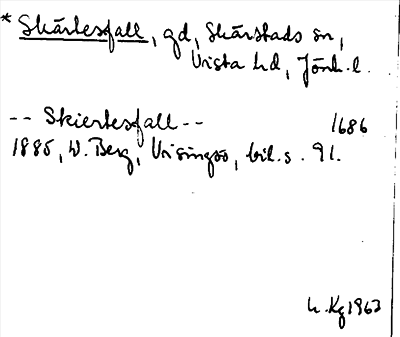 * Skärtesfall, gd, Skärstads sn,
Vista hd, Jönk. l.
-- Skiertesfall -- 1686
1885, W. Berg, Visingsö, bil. s. 91.
h. Kg 1963